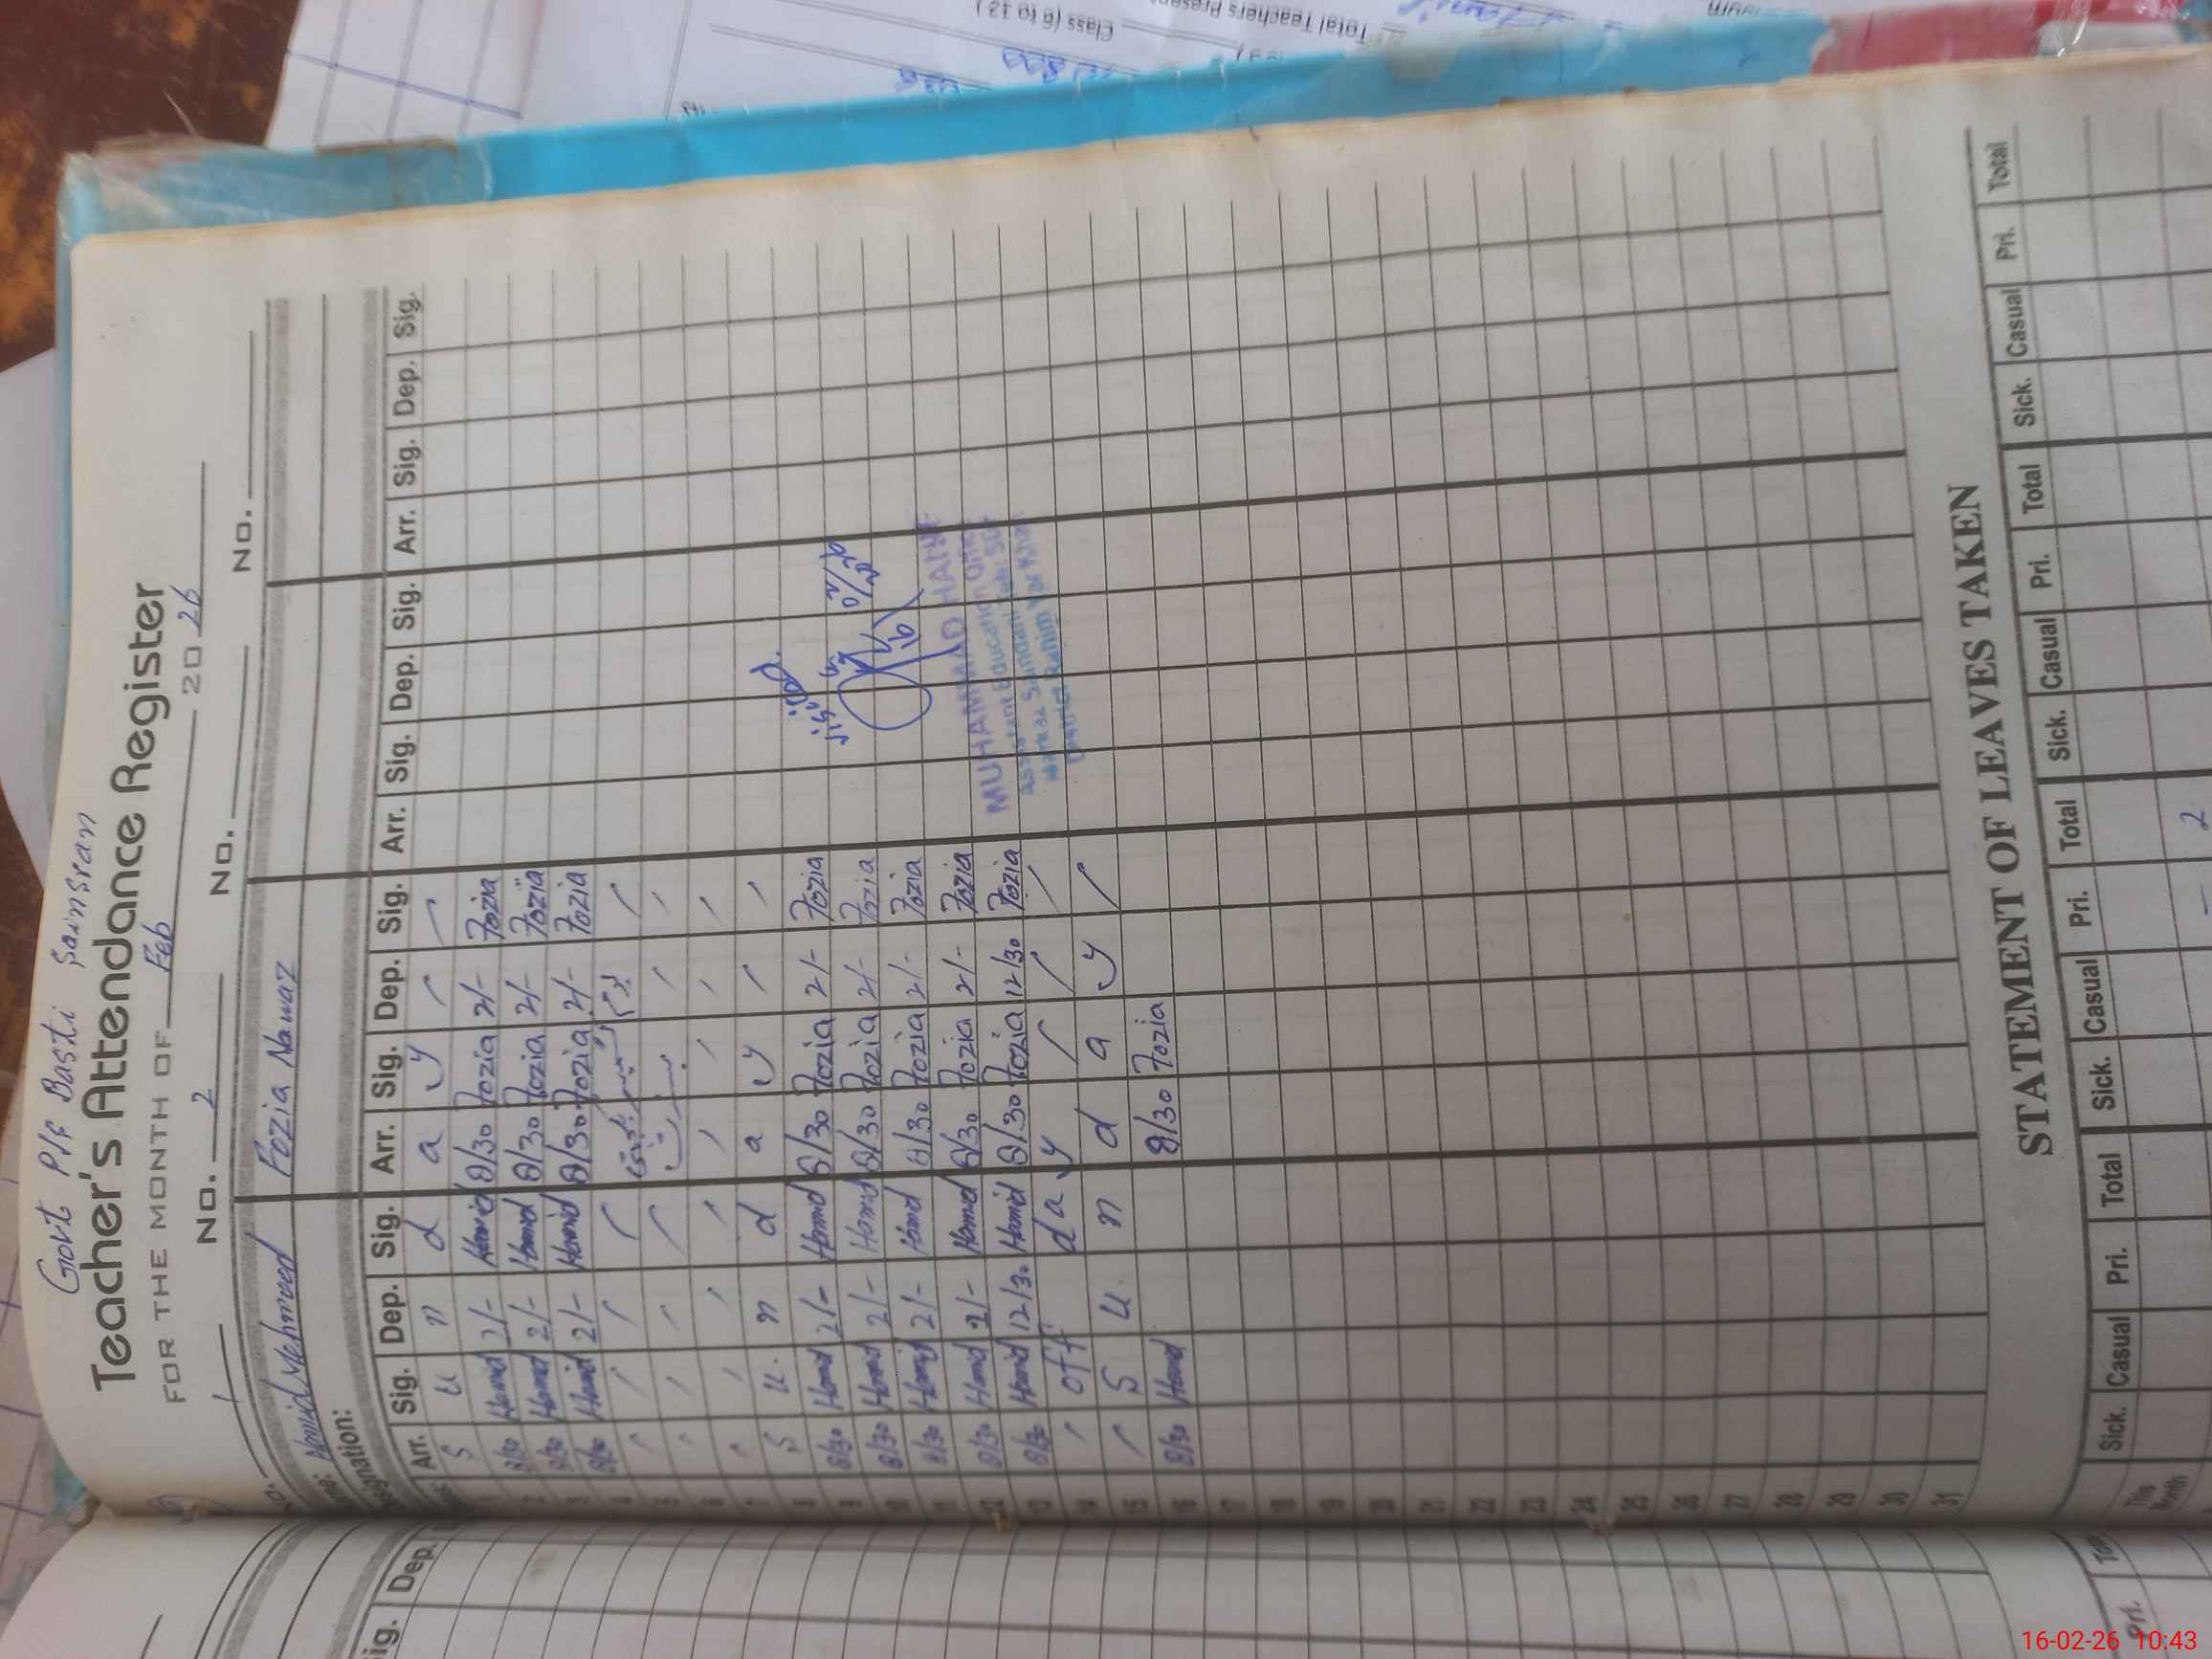 Govt P/s Basti Sainsran
Teacher's Attendance Register
FOR THE MONTH OF Feb 20 26
No. 1 No. 2 No. No.
Name: Hamid Mehmood Fozia Nawaz
Designation:
Arr. Sig. Dep. Sig. Arr. Sig. Dep. Sig. Arr. Sig. Dep. Sig. Arr. Sig. Dep. Sig.
1 S u n d a y
2 8/30 Hamid 2/- Hamid 8/30 Fozia 2/- Fozia
3 8/30 Hamid 2/- Hamid 8/30 Fozia 2/- Fozia
4 8/30 Hamid 2/- Hamid 8/30 Fozia 2/- Fozia
5
6
7
8 S u n d a y
9 8/30 Hamid 2/- Hamid 8/30 Fozia 2/- Fozia
10 8/30 Hamid 2/- Hamid 8/30 Fozia 2/- Fozia
11 8/30 Hamid 2/- Hamid 8/30 Fozia 2/- Fozia
12 8/30 Hamid 2/- Hamid 8/30 Fozia 2/- Fozia
13 8/30 Hamid 12/30 Hamid 8/30 Fozia 12/30 Fozia
14 off day
15 S u n d a y
16 8/30 Hamid 8/30 Fozia
17
18
19
20
21
22
23
24
25
26
27
28
29
30
31
MUHAMMAD HANIF
Assistant Education Officer
Markaz
Rahim Yar Khan
STATEMENT OF LEAVES TAKEN
Sick. Casual Pri. Total Sick. Casual Pri. Total Sick. Casual Pri. Total Sick. Casual Pri. Total
This Month
2
Sig. Dep.
Pri.
Total Teachers Present
Class (6 to 12)
16-02-26 10:43